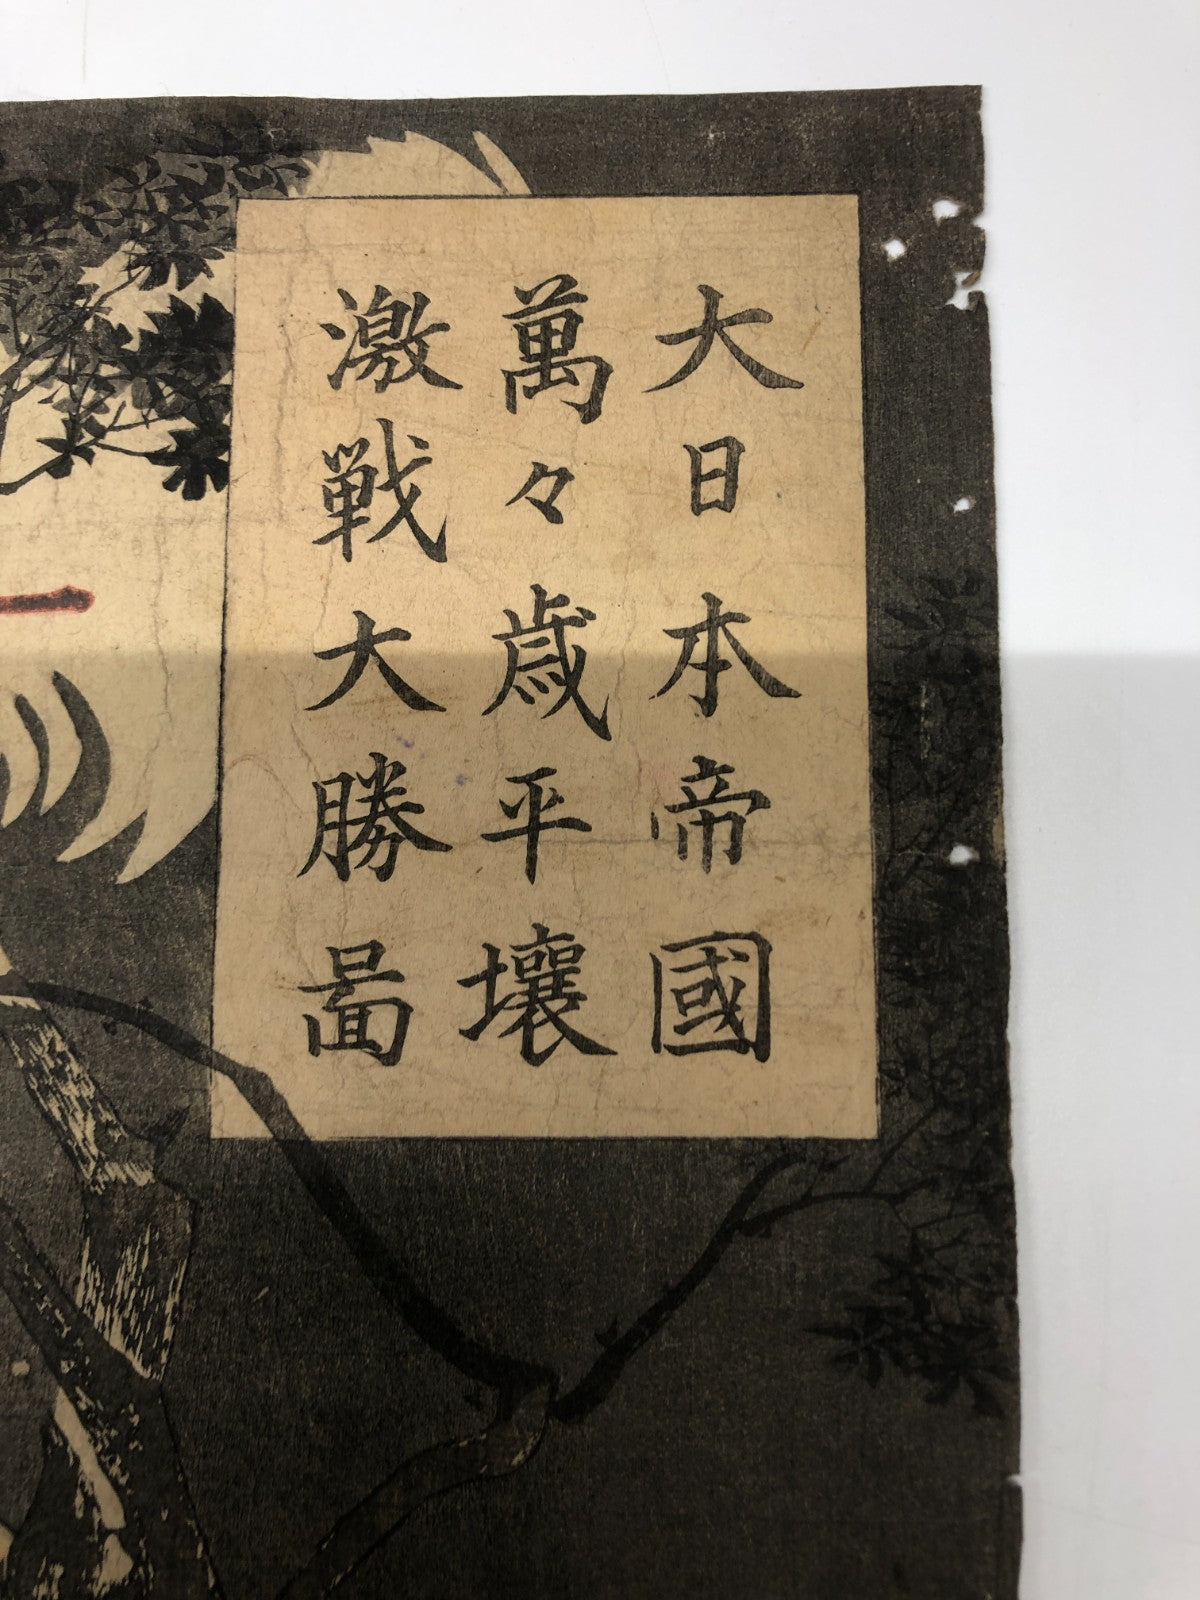 大日本帝國
萬々歳平壤
激戰大勝啚
一